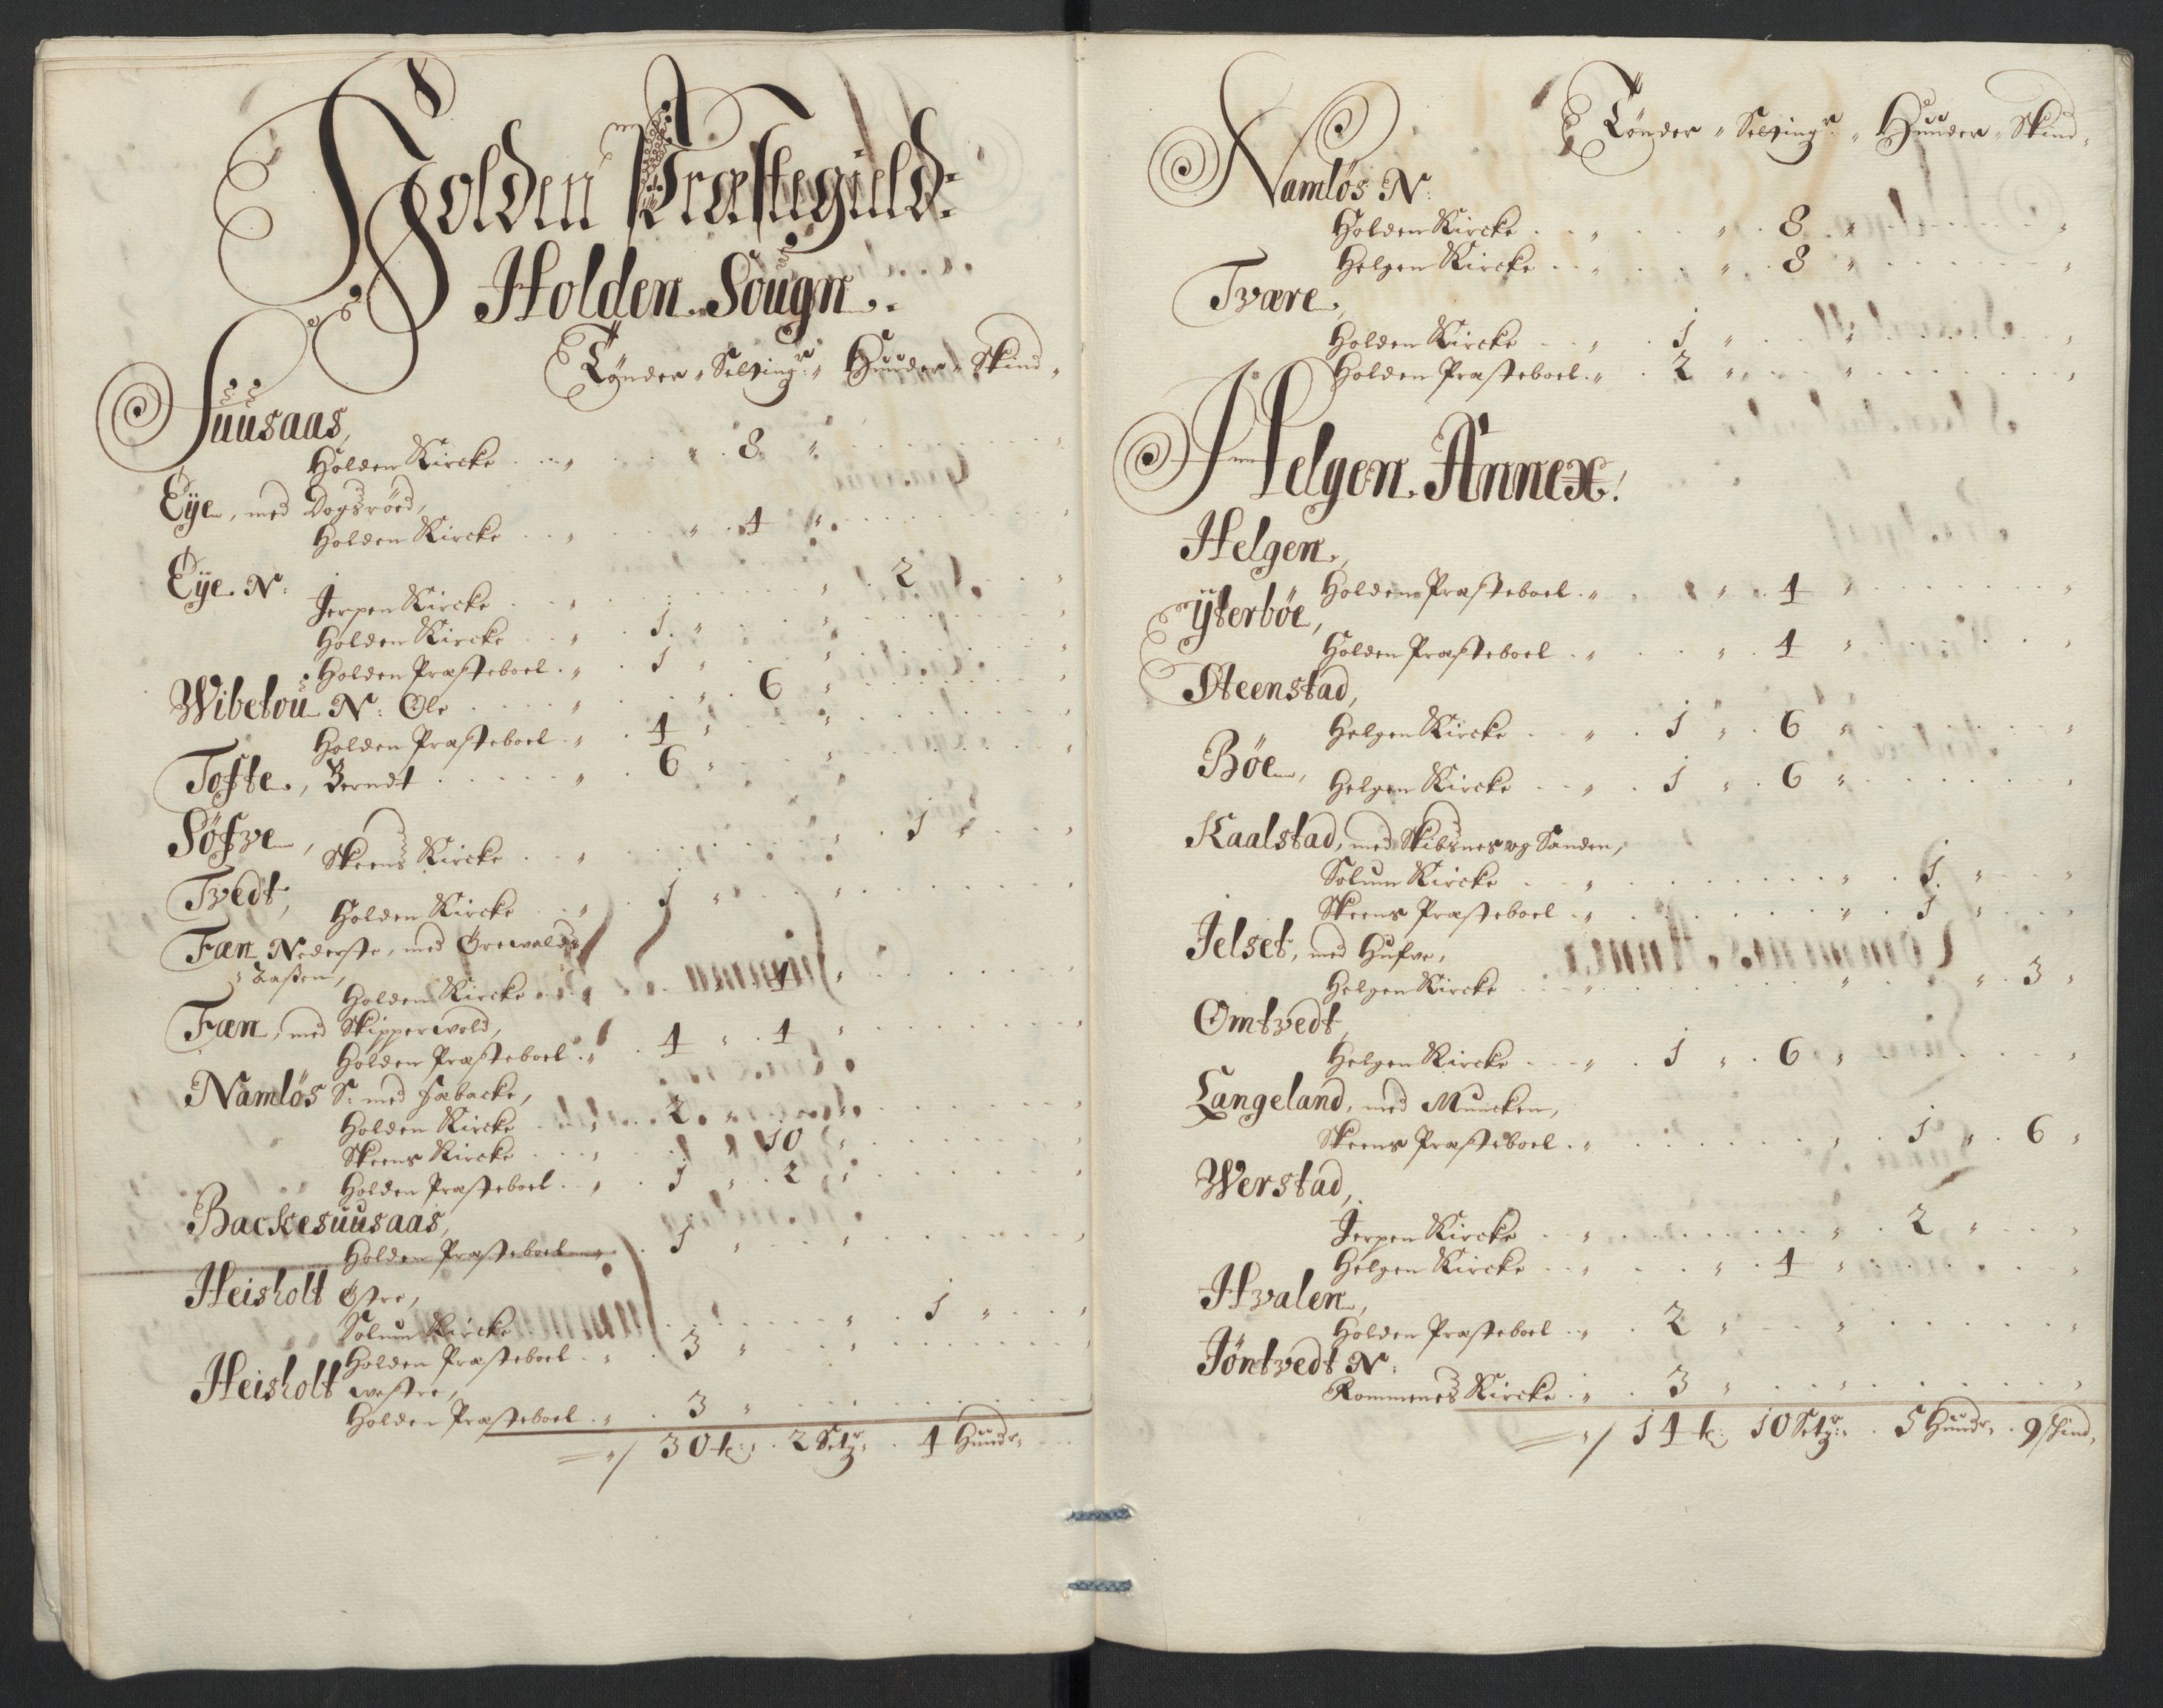 Holden Præstegield
Holden Sougn
Tønder, Setting:, Huuder, Skind,
Suusaas,
Holden Kircke 8
Eye, med Dogsröed,
Holden Kircke 4
Eye N:
Jerpen Kircke 2
Holden Kircke 1
Holden Præsteboel 1
Wibetou N: Ole 6
Holden Præsteboel 4
Tofte, Berndt 6
Söfve,
Skeens Kircke 1
Tvedt,
Holden Kircke 1
Fæn Nederste, med Grewalds
Holden Kircke 4
Fæn, med Skipperwold,
Holden Præsteboel 4 4
Namlös S: med Fabacke,
Holden Kircke 2
Skeens Kircke 10
Holden Præsteboel 1 2
Backesuusaas,
Holden Præsteboel 1
Heisholt Østre,
Solum Kircke 1
Holden Præsteboel 3
Heisholt westre,
Holden Præsteboel 3
30 t: 2 Setg: 4 Huudr,
Tønder, Setting:, Huuder, Skind,
Namlös N:
Holden Kircke 8
Helgen Kircke 8
Tvære,
Holden Kircke 1
Holden Præsteboel 2
Helgen Annex
Helgen,
Holden Præsteboel 4
Ÿterböe,
Holden Præsteboel 4
Steenstad,
Helgen Kircke 1 6
Böe,
Helgen Kircke 1 6
Kaalstad, med Skibsnes og Sanden,
Solum Kircke 1
Skeens Præsteboel 1
Jelset, med Hufve,
Helgen Kircke 3
Omtvedt,
Helgen Kircke 1 6
Langeland, med Muncken,
Skeens Præsteboel 1 6
Werstad,
Jerpen Kircke 2
Helgen Kircke 4
Hvalen,
Holden Præsteboel 2
Jöntvedt N:
Rommenes Kircke 3
14 t: 10 Setg: 5 Huudr, 9 skind,